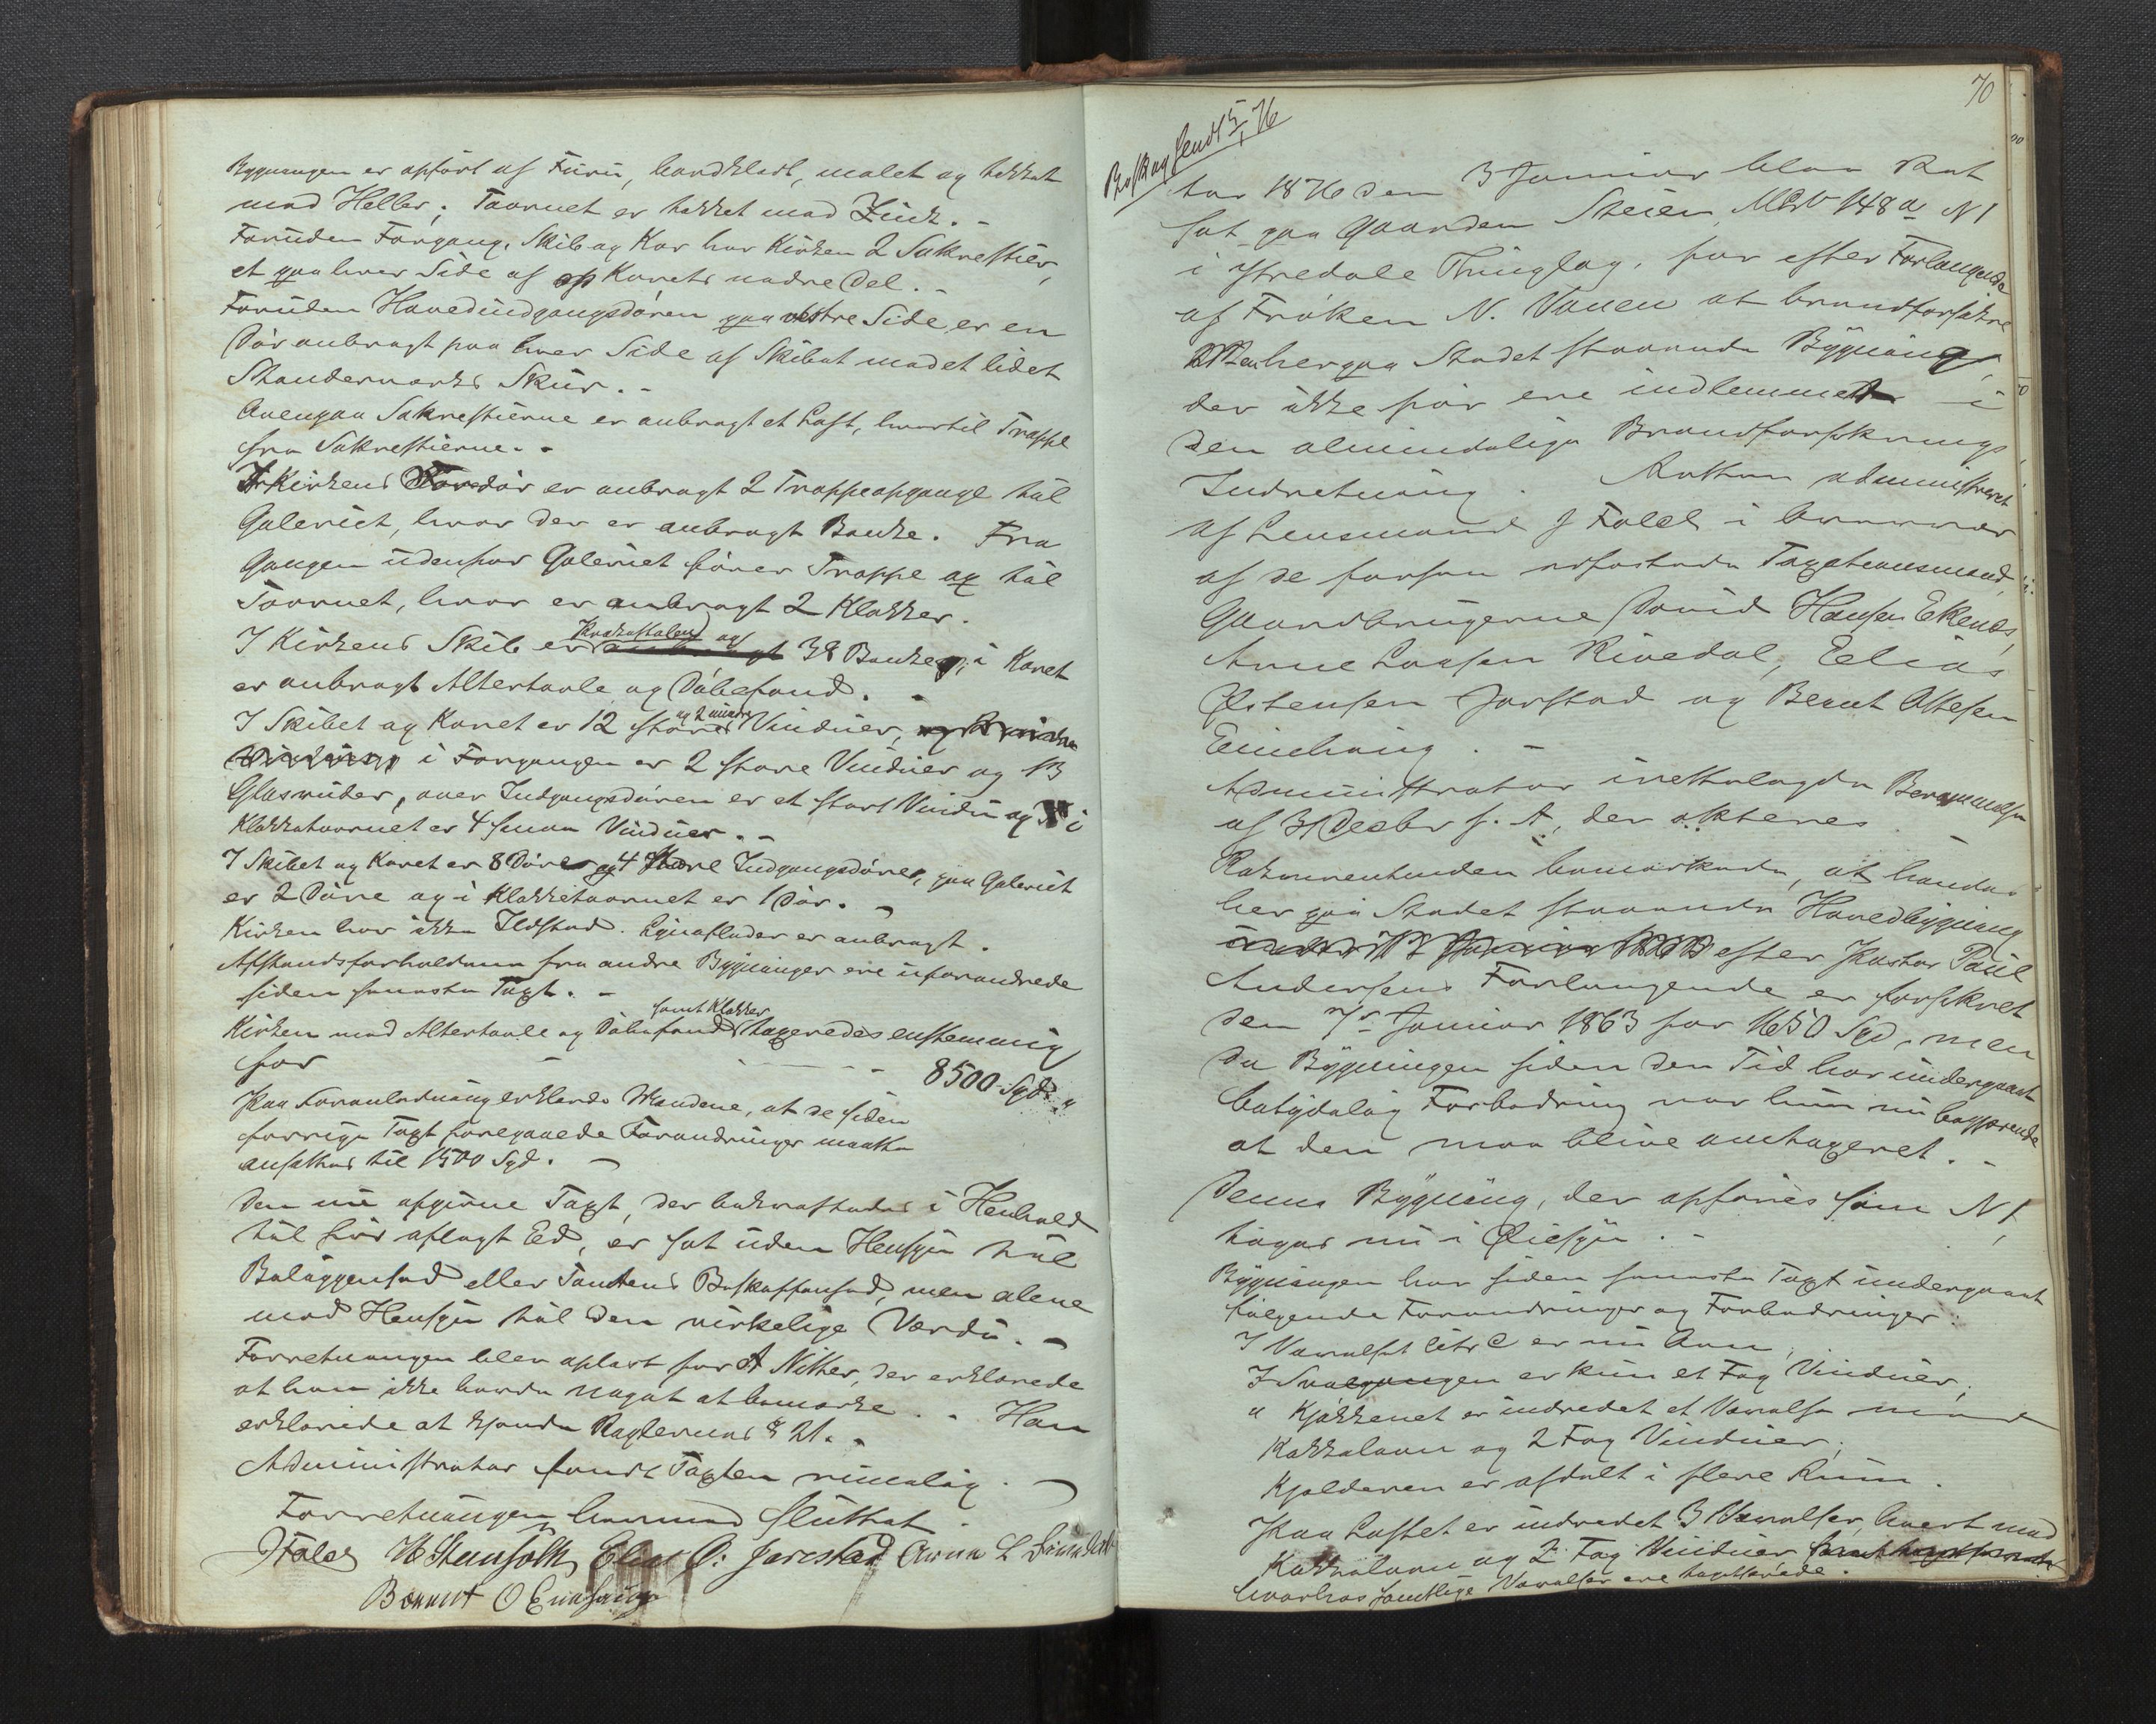 Bygningen er opført af Furu, bordklædt, malet og tækket
med Heller; Taarnet er tækket med Zink. -
Foruden Forgang, Skib og Kor har Kirken 2 Sakrestier,
et paa hver Side af Korets nedre Del. -
Foruden Hovedindgangsdøren paa vestre Side er en
Dør anbragt paa hver Side af Skibet med et lidet
Standerværks Skur. -
Ovenpaa Sakrestierne er anbragt et Loft, hvortil Trappe
fra Sakrestierne. -
Kirkens Fordør er anbragt 2 Trappeopgange til
Galeriet, hvor der er anbragt Bænke. Fra
Gangen udenfor Galeriet fører Trappe op til
Taarnet, hvor er anbragt 2 Klokker.
I Kirkens Skib er Prækestolen og 38 Bænke, i Koret
er anbragt Altertavle og Døbefond. -
I Skibet og Koret er 12 store og 2 mindre Vinduer,
i Forgangen er 2 store Vinduer og 13
Glasruder, over Indgangsdøren er et stort Vindu og i
Klokketaarnet er 4 smaa Vinduer. -
I Skibet og Koret er 8 Døre og 4 Indgangsdøre, paa Galeriet
er 2 Døre og i Klokketaarnet er 1 Dør. -
Kirken har ikke Ildsted. Lynafleder er anbragt.
Afstandsforholdene fra andre Bygninger ere uforandrede
siden seneste Taxt. -
Kirken med Altertavle og Døbefond samt Klokker taxeredes enstemmig
for - - - 8500 Spd. "
Paa Foranledning erklærede Mændene, at de siden
forrige Taxt foregaaede Forandringer maatte
ansættes til 1500 Spd. -
Den nu afgivne Taxt, der bekræftedes i Henhold
til før aflagt Ed, er sat uden Hensyn til
Beliggenhed eller Tomtens Beskaffenhed, men alene
med Hensyn til den virkelige Værdi. -
Forretningen blev oplæst for A Nitter, der erklærede
at han ikke havde noget at bemærke. - Han
erklærede at kjende Reglernes § 21. -
Administrator fandt Taxten rimelig. -
Forretningen hermed sluttet.
J Falch H Steensølk Elias O: Jarestad Arne L Rivedal
Bernnt O Einehaug
70
Beskrag sendt 5/1 76
Aar 1876 den 3 Januar blev Ret
sat paa Gaarden Steien MNo 148a N1
i Ytredale Thinglag, for efter Forlangende
af Frøken N. Vonen at brandforsikre
her paa Stedet staaende Bygning,
der ikke før ere indlemmet i
den almindelige Brandforsikrings
Indretning. Retten administreret
af Lensmand J Falch i Overvær
af de forhen edfæstede Taxationsmænd,
Gaardbrugerne David Hansen Ekenæs,
Arne Larsen Rivedal, Elias
Østensen Jarstad og Bernt Olsen
Einehaug. -
Administrator irettelagde Berammelse
af 31 Decbr f. A, der akteres.
Rekvirentinden bemærkede, at hendes
her paa Stedet staaende Hovedbygning
efter Pastor Paul
Andersens Forlangende er forsikret
den 7de Januar 1863 for 1650 Spd, men
da Bygningen siden den Tid har undergaaet
betydelig Forbedring var hun nu begjærende
at den maa blive omtaxeret. -
Denne Bygning, der opføres som N 1,
toges nu i Øiesyn. -
Bygningen har siden seneste Taxt undergaaet
følgende Forandringer og Forbedringer:
I Værelset Litr C er nu Ovn,
I Svalgangen er kun et Fag Vinduer;
" Kjøkkenet er indredet et Værelse med
Kakkelovn og 2 Fag Vinduer;
Kjælderen er afdelt i flere Rum.
Paa Loftet er indredet 3 Værelser, hvert med
Kakkelovn og 2 Fag Vinduer
hvorhos samtlige Værelser ere tapetserede.